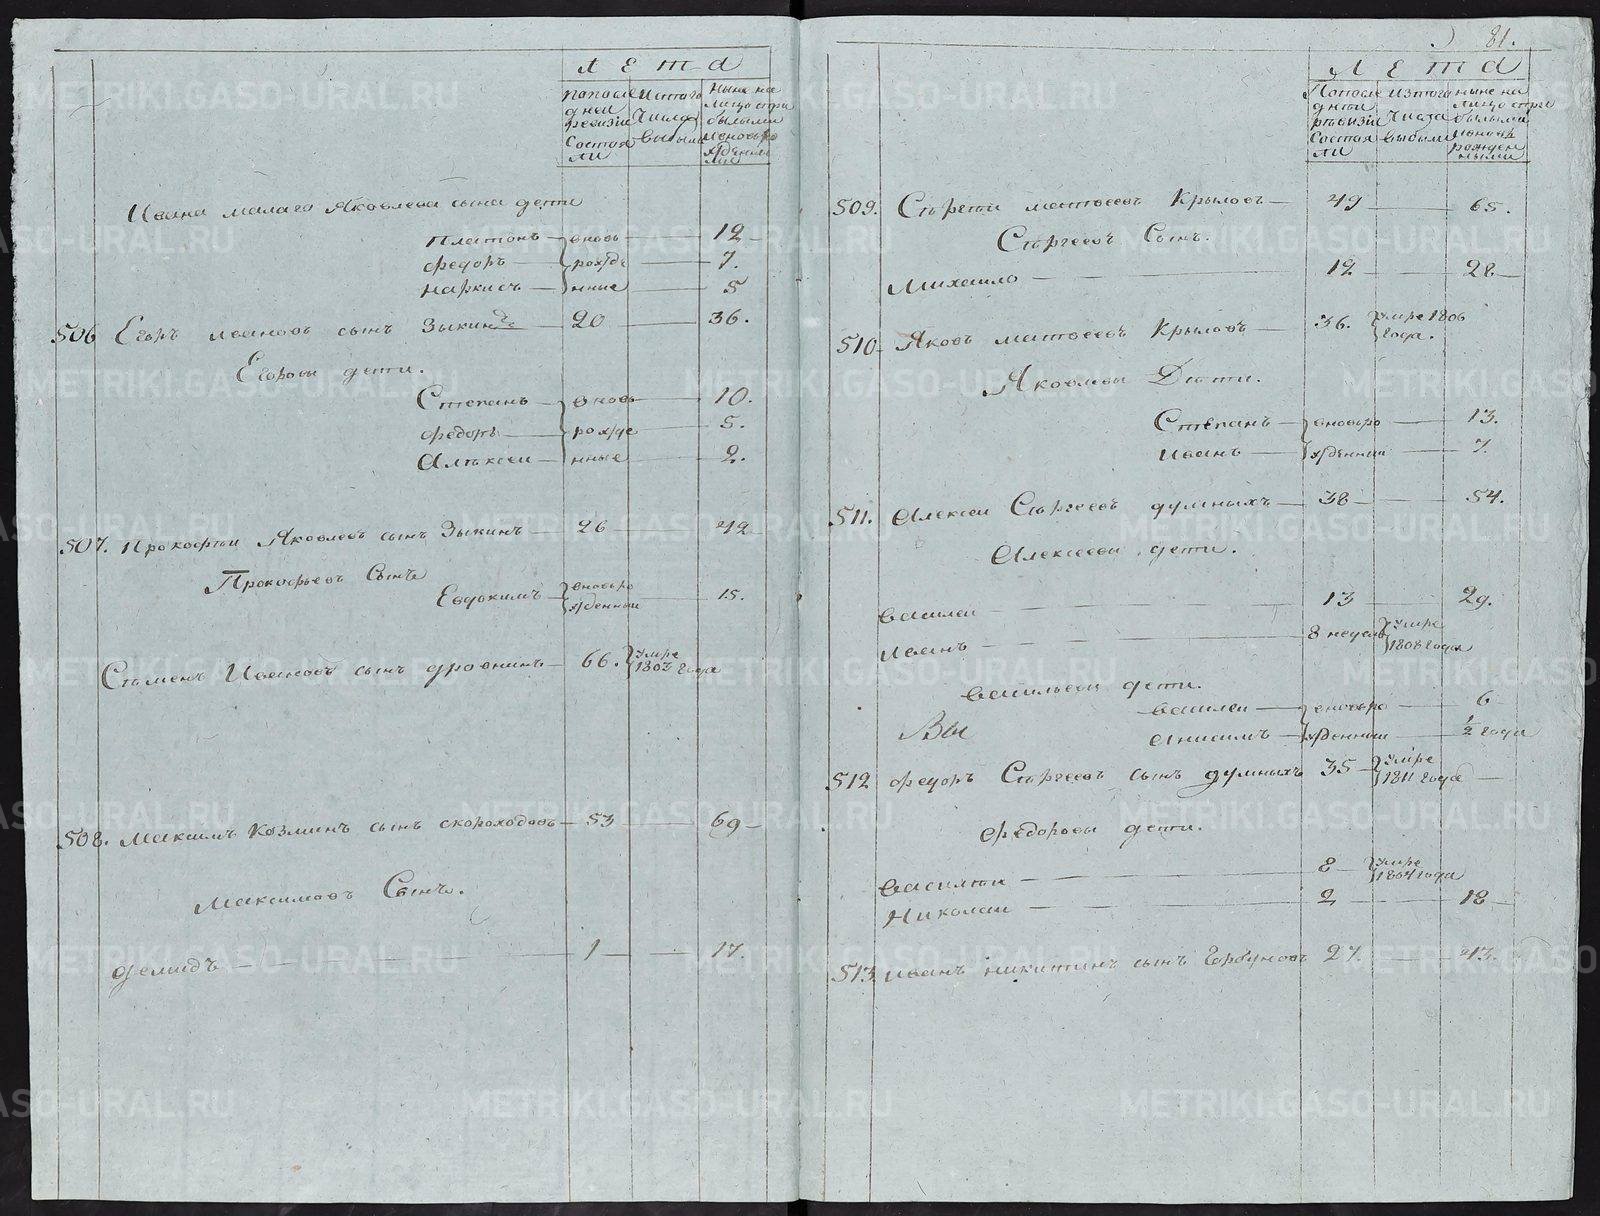 Лета
По после
дней
ревизии
Состоя
ли
Исттого
Числа
выбыло
Ныне на
лицо стри
былыми
иновъро
жденны
ми
Ивана малаго Яковлева сына дети
Платонъ вновь 12
Федоръ рожде 7.
Наркисъ нные 5
506 Егоръ Ивановъ сынъ Зыкинъ 20 36.
Егоровы дети.
Степанъ вновь 10.
Федоръ рожде 5.
Алексеи нные 2.
507. Прокофеи Яковлевъ сынъ Зыкинъ 26 42
Прокофьевъ Сынъ
Евдокимъ вновьро 15.
жденныи
Семенъ Ивановъ сынъ дровнинъ 66. умре
1803 года
508. Максимъ Козминъ сынъ скороходовъ 53 69
Максимовъ Сынъ.
Демидъ 1 17.
81.
Лета
По после
дней
ревизии
Состоя
ли
Изтого
Числа
выбыли
ныне на
лицо стри
былыми
иновъ
рожден
ными
509. Сергеи матвеевъ Крыловъ 49 65.
Сергеевъ Сынъ.
Михаило 12 28
510 Яковъ матвеевъ Крыловъ 36. умре 1806
года.
Яковлевы Дети.
Степанъ вновьро 13.
Иванъ жденныи 7.
511. Алексеи Сергеевъ думныхъ 38 54.
Алексеевы дети.
Василеи 13 29.
Иванъ 8 недель умре
1808 года
Васильевы дети.
Василеи вновьро 6
Вы Анисимъ жденныи ½ года
512 Федоръ Сергеевъ сынъ думныхъ 35 умре
1811 года
Федоровы дети.
Василеи 8 умре
1804 года
Николаи 2 18
513 Иванъ никитинъ сынъ Горбуновъ 27. 43.
METRIKI.GASO-URAL.RU